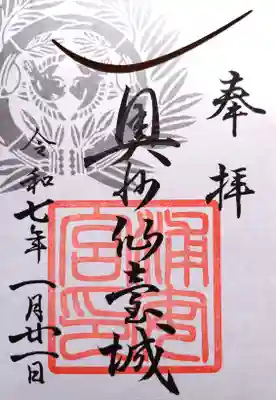 奉拝
奥州仙臺城
令和七年一月廿一日